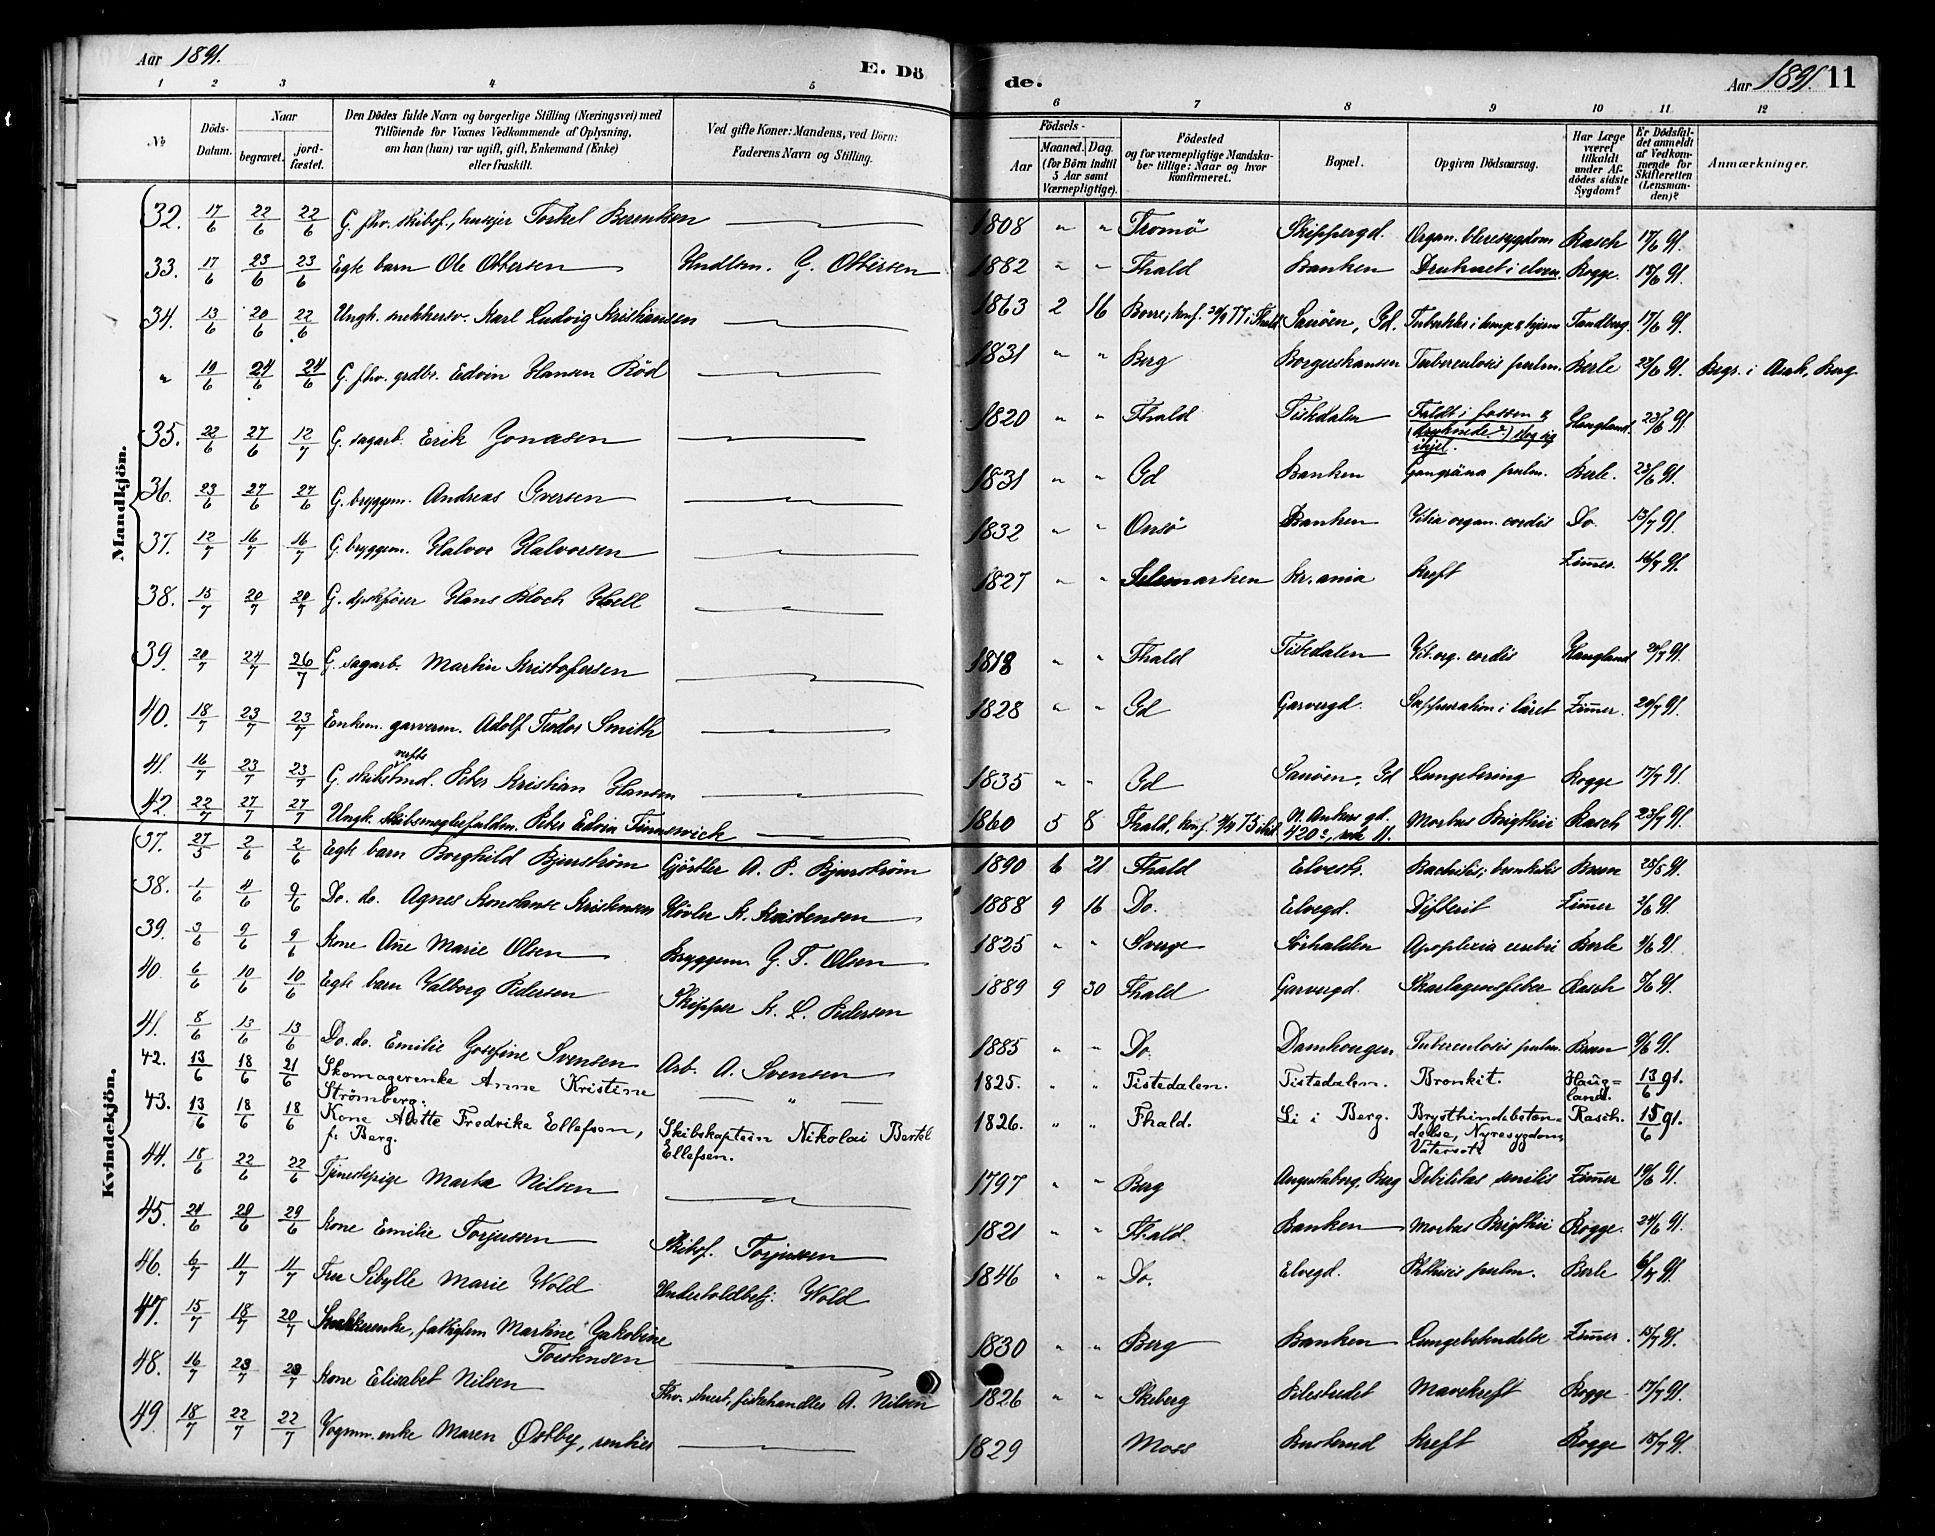 Aar 1891.
E. Dö
de.
Aar 1891. 11
1 2 3 4 5 6 7 8 9 10 11 12
No
Döds-Datum.
Naar
begravet.
jord-fæstet.
Den Dödes fulde Navn og borgerlige Stilling (Næringsvei) med
Tilföiende for Voxnes Vedkommende af Oplysning,
om han (hun) var ugift, gift, Enkemand (Enke)
eller fraskilt.
Ved gifte Koner: Mandens, ved Börn:
Faderens Navn og Stilling.
Födsels-
Aar
Maaned. Dag.
(for Börn indtil
5 Aar samt
Værnepligtige).
Födested
og for værnepligtige Mandska-
ber tillige: Naar og hvor
konfirmeret.
Bopæl.
Opgiven Dödsaarsag.
Har Læge
været
tilkaldt
under Af-
dödes sidste
Sygdom?
Er Dödsfal-
det anmeldt
af Vedkom-
mende for
Skifteretten
(Lensman-
den)?
Anmærkninger.
Mandkjön.
32. 17/6 22/6 22/6 G. fhv. skibsf., huseier Terkel Berentsen 1808 " " Tromö Skippergd. Organ. bleresygdom Rasch 17/6 91.
33. 17/6 23/6 23/6 Egte barn Ole Ottersen G. Ottersen 1882 " " Fhald Banken Druknet i elven. Rogge. 18/6 91.
34. 13/6 20/6 22/6 Ungk. snekkersv. Karl Ludvig Kristiansen 1863 2 16 Borre, konf. 77 i Fhald Sauöen, Gd. Tandberg. 17/6 91.
" 19/6 24/6 24/6 G. fhv. grdbr. Edvin Hansen Röd 1831 " " Berg Borgershansen Tuberculosis pulm. Berle 22/6 91. Begr. i Asak, Berg
35. 22/6 27/6 12/7 G. sagarb. Erik Jonasen 1820 " " Fhald Tistedalen Faldt i fossen &
(druknede?) slog sig
ihjel. Haugland. 23/6 91.
36. 23/6 27/6 27/6 G. bryggem. Andreas Iversen 1831 " " Gd Banken Gangräna pulm. Berle. 23/6 91.
37. 12/7 16/7 16/7 G. bryggem. Halvor Halvorsen 1832 " " Onsö Banken Vitia organ. cordis Do. 13/7 91.
38. 15/7 20/7 20/7 G. Hans Bloch Holl 1827 " " Telemarken Kr.ania Kreft Zimmer. 16/7 91.
39. 20/7 24/7 26/7 G. sagarb. Martin Kristofersen 1818 " " Fhald Tistedalen Vit. org. cordis Haugland 20/7 91.
40. 18/7 23/7 23/7 Enkem. garverm. Adolf Teodor Smith 1828 " " Gd Garvergd. Suppuration i låret Zimmer. 20/7 91.
41. 16/7 23/7 23/7 G. skibsverftsmd. Peter Kristian Hansen 1835 " " Gd Sauöen, Gd Lungetæring Rogge 17/7 91
42. 22/7 27/7 27/7 Ungk. Skibsmeglerfuldm. Peter Edvin Finnswick 1860 5 8 Fhald, konf. 75 N. Ankers gd.
420 Morbus Brigthii Rasch 23/7 91.
Kvindekjön.
37. 27/5 2/6 2/6 Egte barn Borghild Bjurström Gjörtler A. P. Bjurström 1890 6 21 Fhald Elvests. Rachitis, bronkitis Bruun 28/5 91.
38. 1/6 4/6 9/6 Do. do. Agnes Konstanse Kristensen Hövler K. Kristensen 1888 9 16 Do. Elvegd. Difterit Zimmer 2/6 91.
39. 3/6 9/6 9/6 Kone Ane Marie Olsen Bryggem. G. T. Olsen 1825 " " Sverge Sörhalden Apoplexia cerebri Berle 4/6 91.
40. 6/6 10/6 10/6 Egte barn Valborg Pedersen Skipper K. L. Pedersen 1889 9 30 Fhald Garvergd. Skarlagensfeber Rasch 8/6 91.
41. 8/6 13/6 13/6 Do. do. Emilie Josefine Svensen Arb. A. Svensen 1885 " " Do. Damhougen. Tuberculosis pulm. Bruun 9/6 91.
42. 13/6 18/6 21/6 Skomagerenke Anne Kristine
Strömberg. " 1825. " " Tistedalen. Tistedalen. Bronkit. Haug-
land. 13/6 91.
43. 13/6 18/6 18/6 Kone Alette Fredrika Ellefsen,
f. Berg. Skibskaptein Nikolai Bertel
Ellefsen. 1826. " " Fhald. Li i Berg. Brysthindebeten-
delse, Nyresygdom,
Vatersott Rasch. 15/6 91.
44. 18/6 22/6 22/6 Tjenestepige Marta Nilsen 1797 " " Berg Augustaborg, Berg Debilitas senilis Zimmer 19/6 91.
45. 21/6 28/6 29/6 Kone Emilie Torjussen Skibsf. Torjussen 1821 " " Fhald. Banken Morbus Brigthii Rogge. 24/6 91.
46. 6/7 11/7 11/7 Fru Sibylle Marie Wold Underfoldbetj. Wold 1846 " " Do. Elvegd. Phthisis pulm. Berle 6/7 91.
47. 15/7 18/7 20/7 Snekkerenke, fattiglem Martine Jakobine
Torstensen 1830 " " Berg Banken Lungebetendelse Zimmer. 15/7 91.
48. 16/7 23/7 23/7 Kone Elisabet Nilsen Fhv. smed, fiskehandler A. Nilsen 1826 " " Skeberg Pilestredet Mavekreft Rogge 17/7 91.
49. 18/7 22/7 22/7 Vognm.enke Maren Østby, rentier 1829 Moss Buskerud Kreft Rogge 18/7 91.